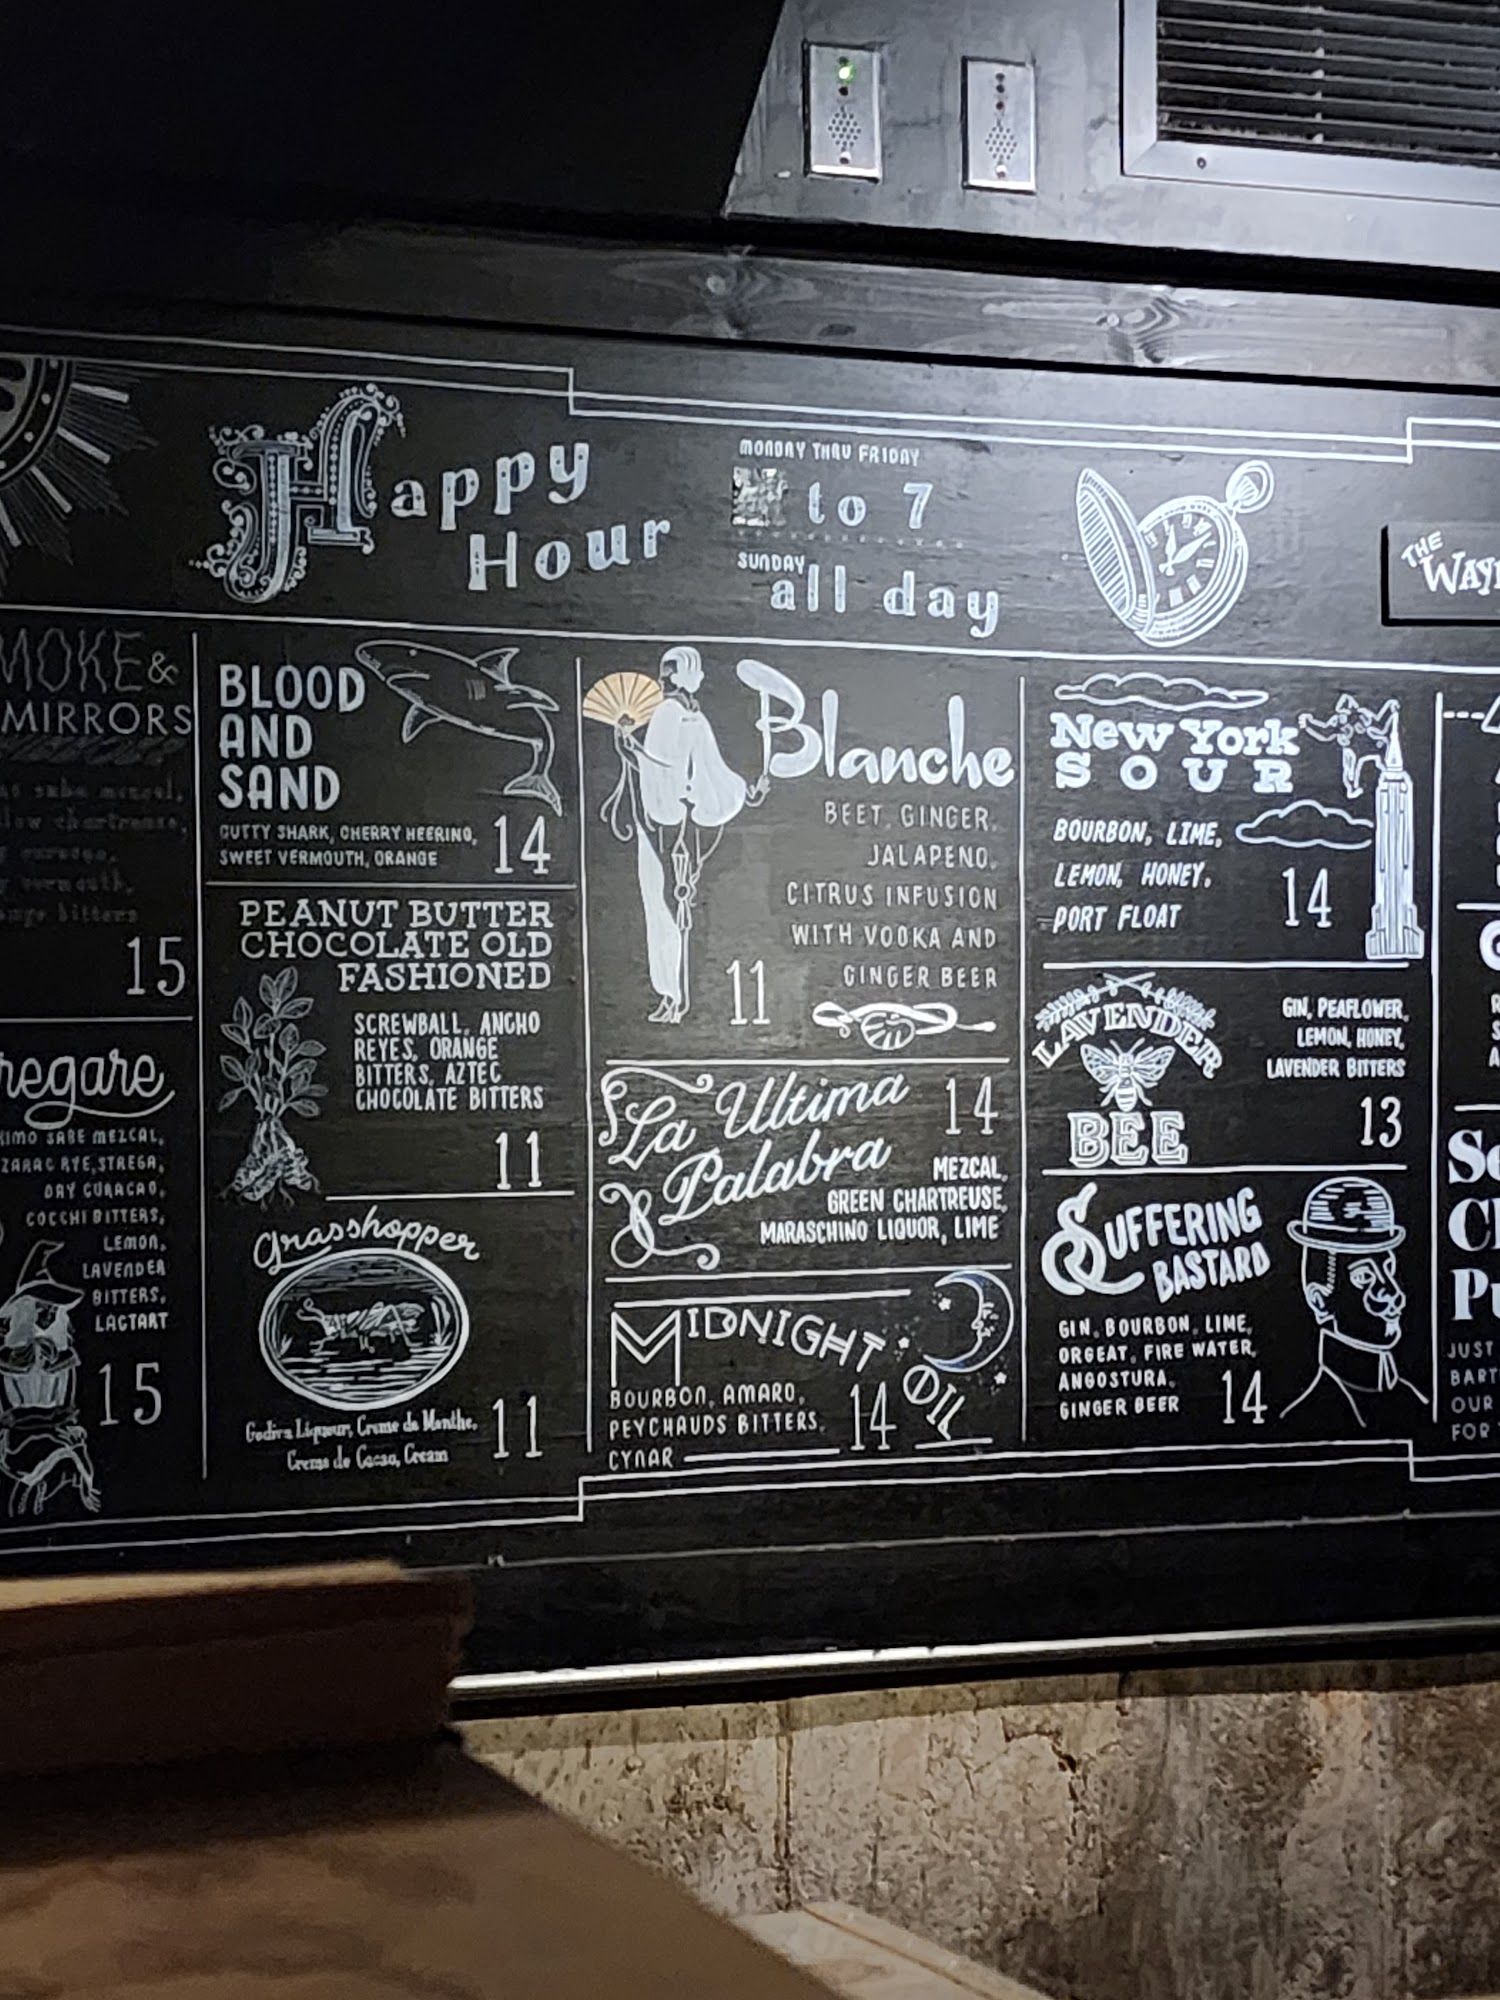 Happy
Hour
MONDAY THRU FRIDAY
to 7
SUNDAY
all day
THE
MOKE &
MIRRORS
15
regare
SABE MEZCAL,
RYE, STREGA,
DRY CURACAO,
COCCHI BITTERS,
LEMON,
LAVENDER
BITTERS,
LACTART
15
BLOOD
AND
SAND
CUTTY SHARK, CHERRY HEERING,
SWEET VERMOUTH, ORANGE
14
PEANUT BUTTER
CHOCOLATE OLD
FASHIONED
SCREWBALL, ANCHO
REYES, ORANGE
BITTERS, AZTEC
CHOCOLATE BITTERS
11
Grasshopper
Godiva Liqueur, Creme de Menthe,
Creme de Cacao, Cream
11
Blanche
BEET, GINGER,
JALAPENO,
CITRUS INFUSION
WITH VODKA AND
GINGER BEER
11
La Ultima
Palabra
14
MEZCAL,
GREEN CHARTREUSE,
MARASCHINO LIQUOR, LIME
MIDNIGHT
OIL
BOURBON, AMARO,
PEYCHAUDS BITTERS,
CYNAR
14
New York
SOUR
BOURBON, LIME,
LEMON, HONEY,
PORT FLOAT
14
LAVENDER
BEE
GIN, PEAFLOWER,
LEMON, HONEY,
LAVENDER BITTERS
13
SUFFERING
BASTARD
GIN, BOURBON, LIME,
ORGEAT, FIRE WATER,
ANGOSTURA,
GINGER BEER
14
JUST
BART
OUR
FOR